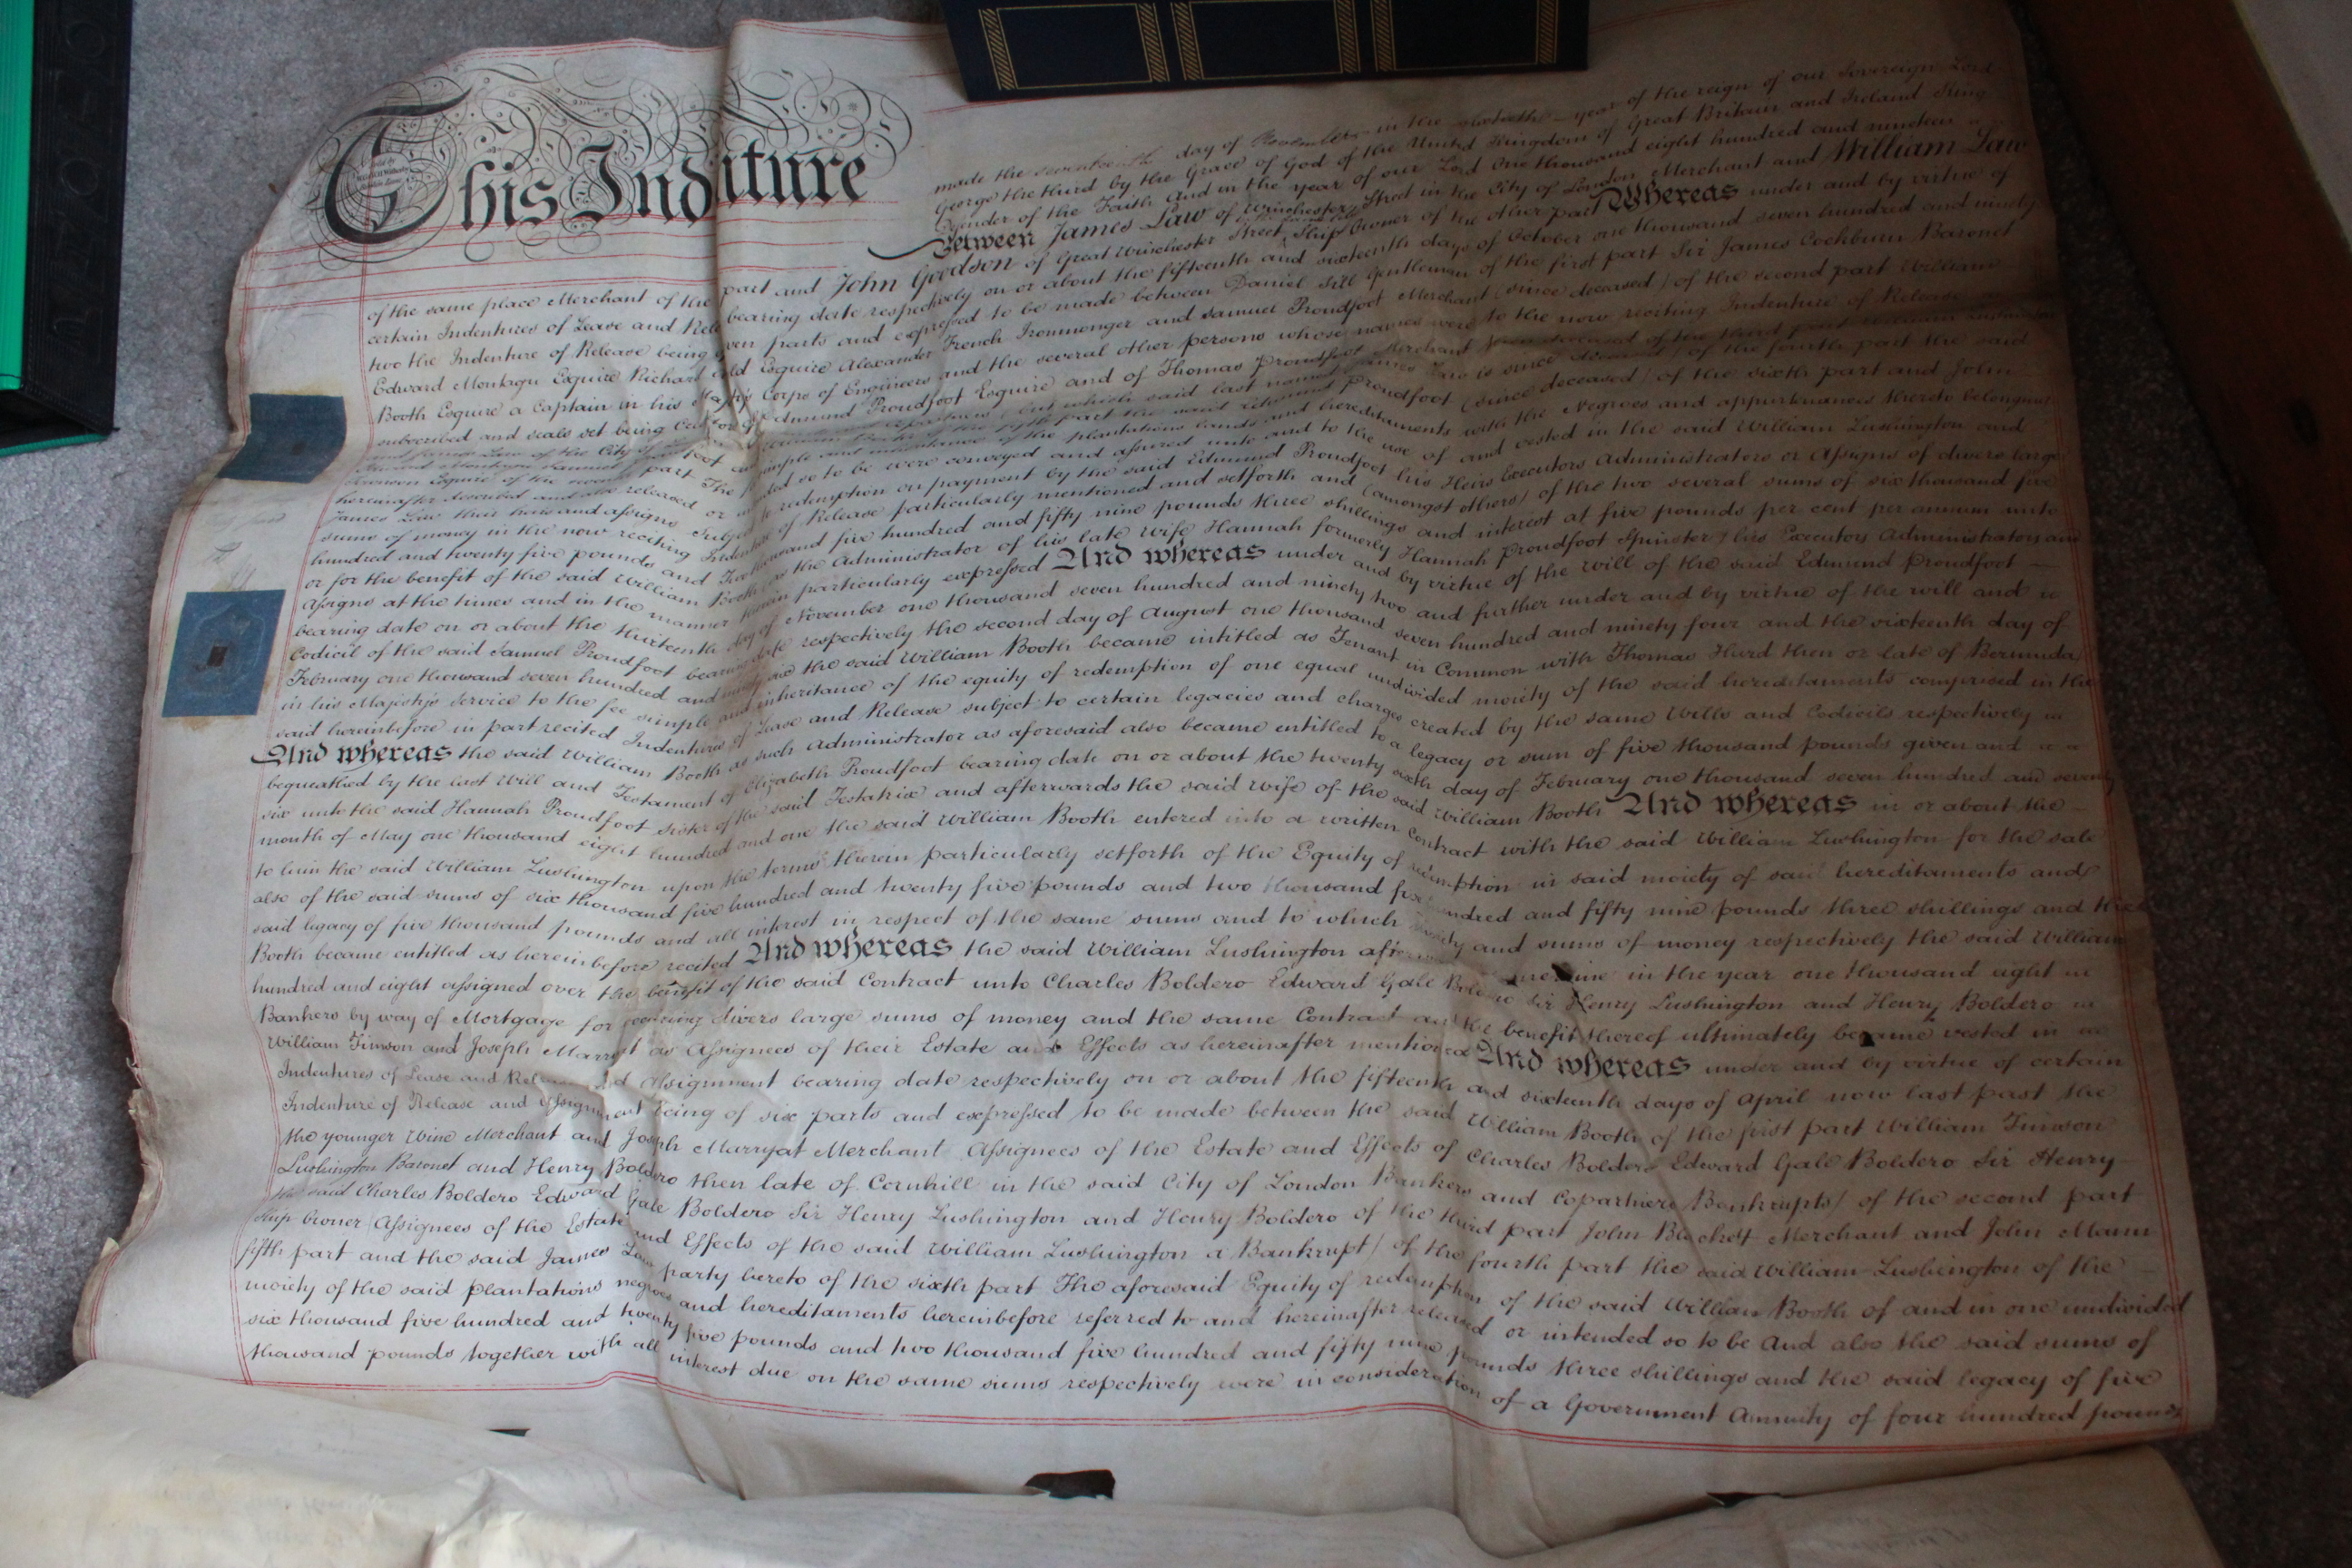 This Indenture
made the seventeenth day of November in the sixtieth year of the reign of our Sovereign Lord
George the third by the Grace of God of the United Kingdom of Great Britain and Ireland King
Defender of the Faith And in the year of our Lord One thousand eight hundred and nineteen
Between James Law of Winchester Street in the City of London Merchant and William Law
of the same place Merchant of the part and John Goodson of Great Winchester Street Ship Owner of the other part Whereas under and by virtue of
certain Indentures of Lease and Rele bearing date respectively on or about the fifteenth and sixteenth days of October one thousand seven hundred and ninety
two the Indenture of Release being ven parts and expressed to be made between Daniel Gentleman of the first part Sir James Cockburn Baronet
Edward Montagu Esquire Richard Esquire Alexander French Ironmonger and Samuel Proudfoot Merchant (since deceased) of the second part William
Booth Esquire a Captain in his Majtys Corps of Engineers and the several other persons whose names were to the now reciting Indenture of Release
subscribed and seals set being Edmund Proudfoot Esquire and of Thomas Proudfoot Merchant of the third part William
and James Law of the City of which said last named James Law is since deceased) of the fourth part the said
Edward Montagu Samuel Proudfoot of the fifth part the said Edmund Proudfoot (since deceased) of the sixth part and John
Esquire of the seventh part The simple and inheritance of the plantations lands and hereditaments with the Negroes and appurtenances thereto belonging
hereinafter described and also released or intended so to be were conveyed and assured unto and to the use of and vested in the said William Lushington and
James Law their heirs and assigns Subject to redemption on payment by the said Edmund Proudfoot his Heirs Executors Administrators or Assigns of divers large
sums of money in the now reciting Indenture of Release particularly mentioned and setforth and (amongst others) of the two several sums of six thousand five
hundred and twenty five pounds and Two thousand five hundred and fifty nine pounds three shillings and interest at five pounds per cent per annum unto
or for the benefit of the said William Booth as the Administrator of his late wife Hannah formerly Hannah Proudfoot Spinster his Executors Administrators and
Assigns at the times and in the manner therein particularly expressed And whereas under and by virtue of the will of the said Edmund Proudfoot
bearing date on or about the thirteenth day of November one thousand seven hundred and ninety two and further under and by virtue of the will and
Codicil of the said Samuel Proudfoot bearing date respectively the second day of August one thousand seven hundred and ninety four and the sixteenth day of
February one thousand seven hundred and ninety six the said William Booth became intitled as Tenant in Common with Thomas Hurd then or late of Bermuda
in his Majesty's Service to the fee simple and inheritance of the equity of redemption of one equal undivided moiety of the said hereditaments comprised in the
said hereinbefore in part recited Indentures of Lease and Release subject to certain legacies and charges created by the same Wills and Codicils respectively
And whereas the said William Booth as such Administrator as aforesaid also became entitled to a legacy or sum of five thousand pounds given and
bequeathed by the last Will and Testament of Elizabeth Proudfoot bearing date on or about the twenty sixth day of February one thousand seven hundred and seventy
six unto the said Hannah Proudfoot sister of the said Testatrix and afterwards the said wife of the said William Booth And whereas in or about the
month of May one thousand eight hundred and one the said William Booth entered into a written Contract with the said William Lushington for the sale
to him the said William Lushington upon the terms therein particularly setforth of the Equity of redemption in said moiety of said hereditaments and
also of the said sums of six thousand five hundred and twenty five pounds and two thousand five hundred and fifty nine pounds three shillings and the
said legacy of five thousand pounds and all interest in respect of the same sums and to which moiety and sums of money respectively the said William
Booth became entitled as hereinbefore recited And whereas the said William Lushington after time in the year one thousand eight
hundred and eight assigned over the benefit of the said Contract unto Charles Boldero Edward Gale Boldero Sir Henry Lushington and Henry Boldero
Bankers by way of Mortgage for securing divers large sums of money and the same Contract and the benefit thereof ultimately became vested in
William Timson and Joseph Marryat as Assignees of their Estate and Effects as hereinafter mentioned And whereas under and by virtue of certain
Indentures of Lease and Release and Assignment bearing date respectively on or about the fifteenth and sixteenth days of April now last past the
Indenture of Release and Assignment being of six parts and expressed to be made between the said William Booth of the first part William Timson
the younger Wine Merchant and Joseph Marryat Merchant Assignees of the Estate and Effects of Charles Boldero Edward Gale Boldero Sir Henry
Lushington Baronet and Henry Boldero then late of Cornhill in the said City of London Bankers and Copartners Bankrupts) of the second part
the said Charles Boldero Edward Gale Boldero Sir Henry Lushington and Henry Boldero of the third part John Blackett Merchant and John Mann
Ship Owner (Assignees of the Estate and Effects of the said William Lushington a Bankrupt) of the fourth part the said William Lushington of the
fifth part and the said James Law party hereto of the sixth part The aforesaid Equity of redemption of the said William Booth of and in one undivided
moiety of the said plantations negroes and hereditaments hereinbefore referred to and hereinafter released or intended so to be And also the said sums of
six thousand five hundred and twenty five pounds and two thousand five hundred and fifty nine pounds three shillings and the said legacy of five
thousand pounds together with all interest due on the same sums respectively were in consideration of a Government Annuity of four hundred pounds